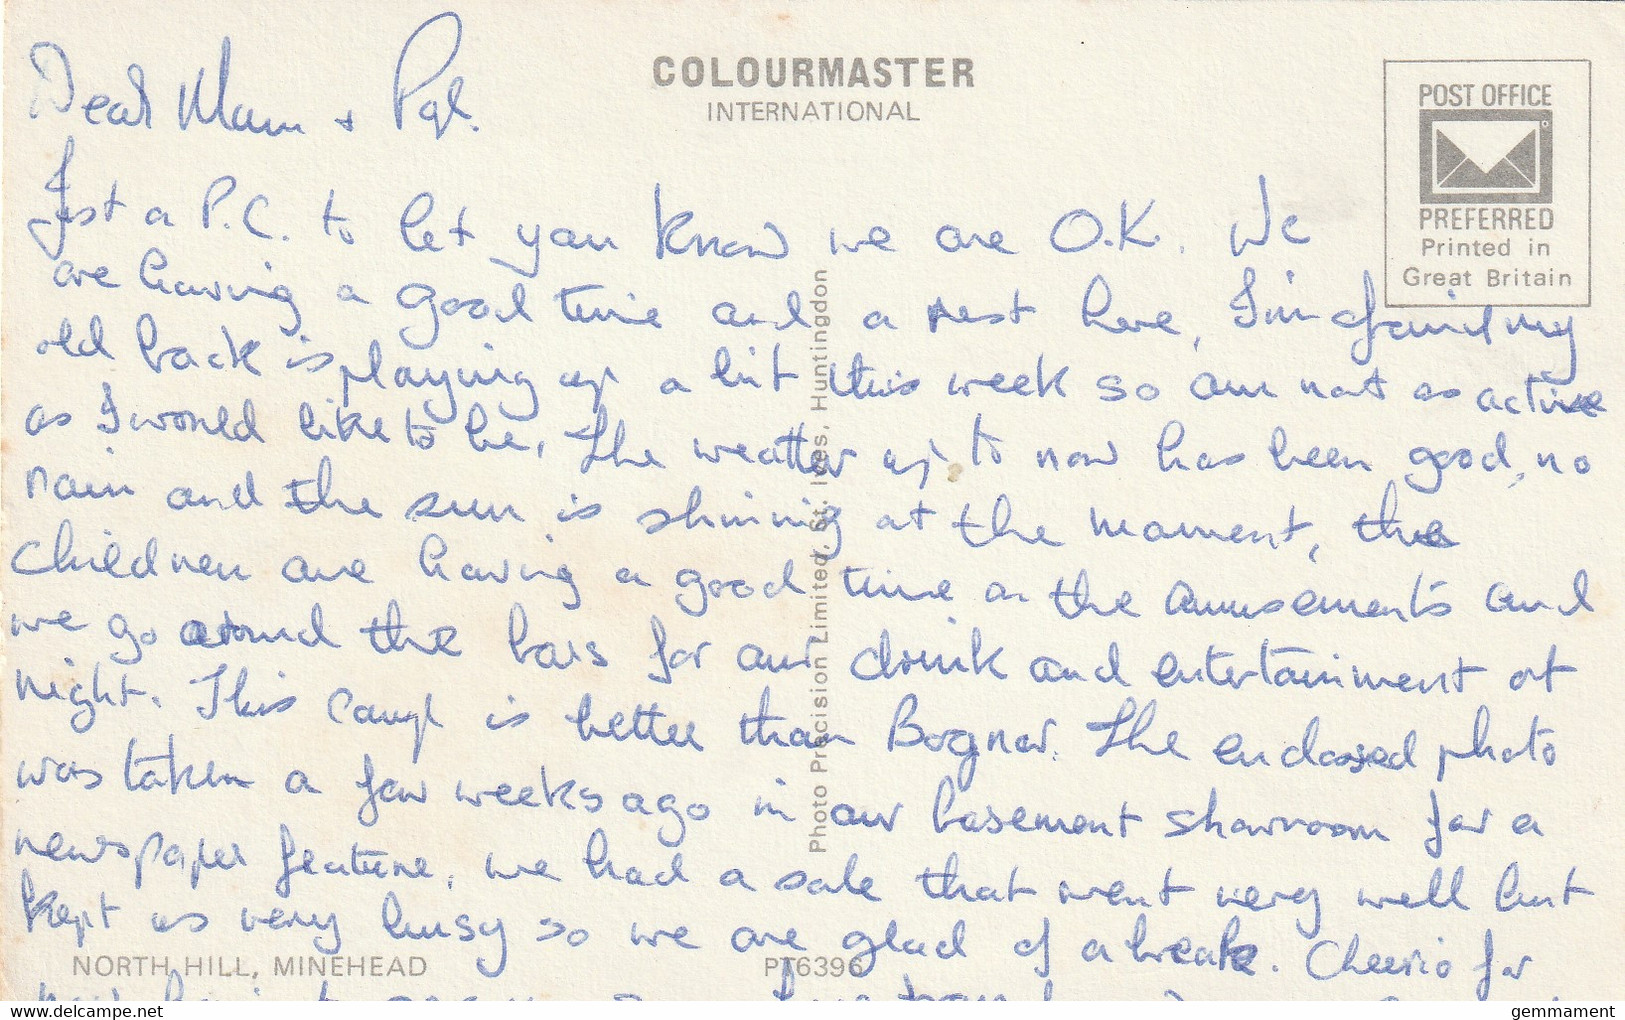 COLOURMASTER
INTERNATIONAL
POST OFFICE
PREFERRED
Printed in
Great Britain
Dear Mam + Pat.
Just a P.C. to let you know we are O.K. We
are having a good time and a rest here, I'm afraid my
old back is playing up a bit this week so am not as active
as I would like to be. The weather up to now has been good, no
rain and the sun is shining at the moment, the
children are having a good time on the amusements and
we go around the bars for our drink and entertainment at
night. This camp is better than Bognor. The enclosed photo
was taken a few weeks ago in our basement showroom for a
newspaper feature, we had a sale that went very well but
kept us very busy so we are glad of a break. Cheerio for
Photo Precision Limited, St. Ives, Huntingdon
NORTH HILL, MINEHEAD
PT6396
delcampe.net
gemmament